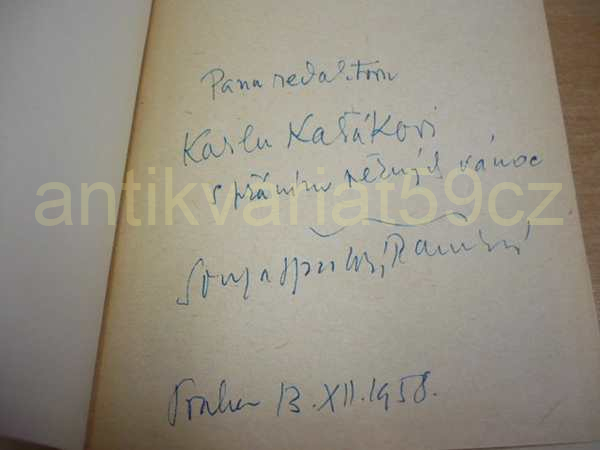 Panu redaktoru
Karlu Kaťákovi
s přáním něžných vánoc
antikvariat59cz
Sonja Špálová,
Praha 13.XII.1958.